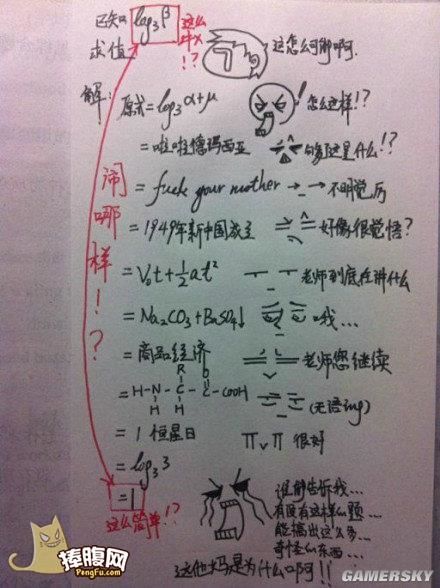 已知 log₃β 这么叼!?
求值 这怎么可解啊.
解: 原式=log₃α+μ 怎么这样!?
=啦啦德玛西亚 够 这是什么!?
=fuck your mother →_→ 不明觉厉
=1949年新中国成立 好像很觉悟?
=V₀t+½at² 老师到底在讲什么
=Na₂CO₃+BaSO₄↓ 哦我...
=商品经济 老师您继续
R
H-N-C-C-COOH (无语ing)
H H
=1恒星日 ΠvΠ 很好
=log₃3
=1
这么简单!?
闹哪样!?
谁能告诉我...
有没有这样的题...
能搞出这么多...
奇怪的东西...
这他大妈是为什么啊啊!!
捧腹网
PengFu.com
GAMERSKY